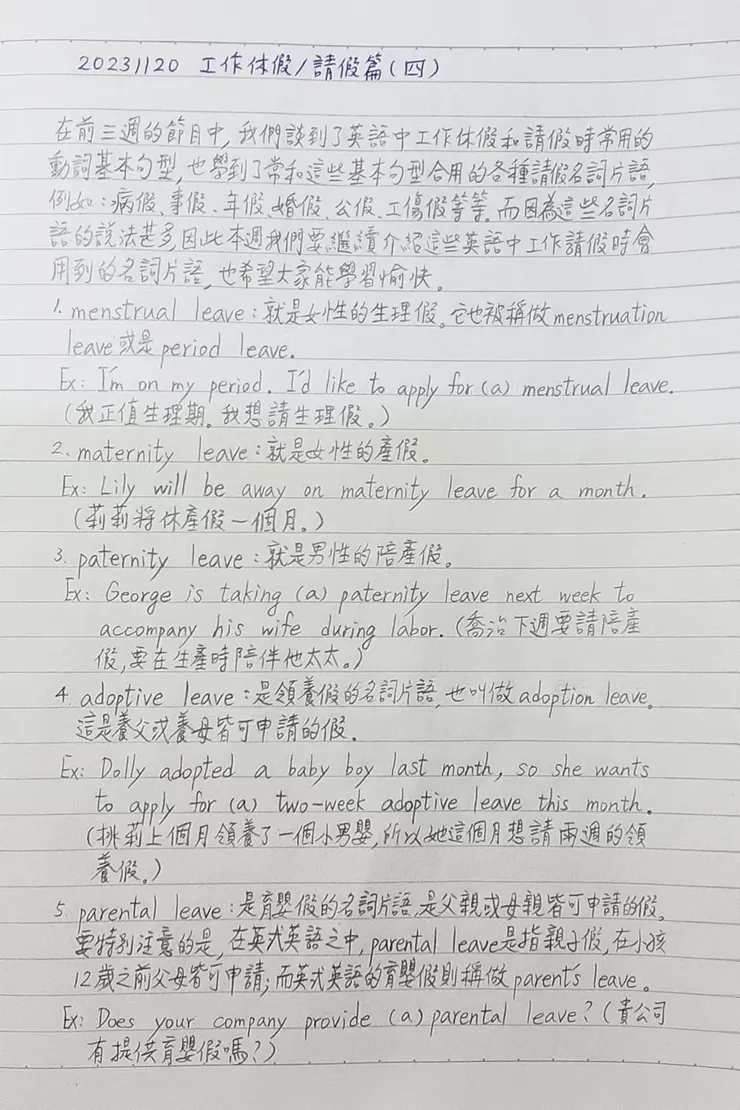 20231120 工作休假/請假篇(四)
在前三週的節目中,我們談到了英語中工作休假和請假時常用的
動詞基本句型,也學到了常和這些基本句型合用的各種請假名詞片語,
例如:病假、事假、年假、婚假、公假、工傷假等等。而因為這些名詞片
語的說法甚多,因此本週我們要繼續介紹這些英語中工作請假時會
用到的名詞片語,也希望大家能學習愉快。
1. menstrual leave:就是女性的生理假。它也被稱做menstruation
leave或是period leave.
Ex: I'm on my period. I'd like to apply for (a) menstrual leave.
(我正值生理期。我想請生理假。)
2. maternity leave:就是女性的產假。
Ex: Lily will be away on maternity leave for a month.
(莉莉將休產假一個月。)
3. paternity leave:就是男性的陪產假。
Ex: George is taking (a) paternity leave next week to
accompany his wife during labor. (喬治下週要請陪產
假,要在生產時陪伴他太太。)
4. adoptive leave:是領養假的名詞片語,也叫做adoption leave。
這是養父或養母皆可申請的假.
Ex: Dolly adopted a baby boy last month, so she wants
to apply for (a) two-week adoptive leave this month.
(桃莉上個月領養了一個小男嬰,所以她這個月想請兩週的領
養假。)
5. parental leave:是育嬰假的名詞片語,是父親或母親皆可申請的假。
要特別注意的是,在英式英語之中,parental leave是指親子假,在小孩
12歲之前父母皆可申請;而英式英語的育嬰假則稱做parent's leave。
Ex: Does your company provide (a) parental leave? (貴公司
有提供育嬰假嗎?)